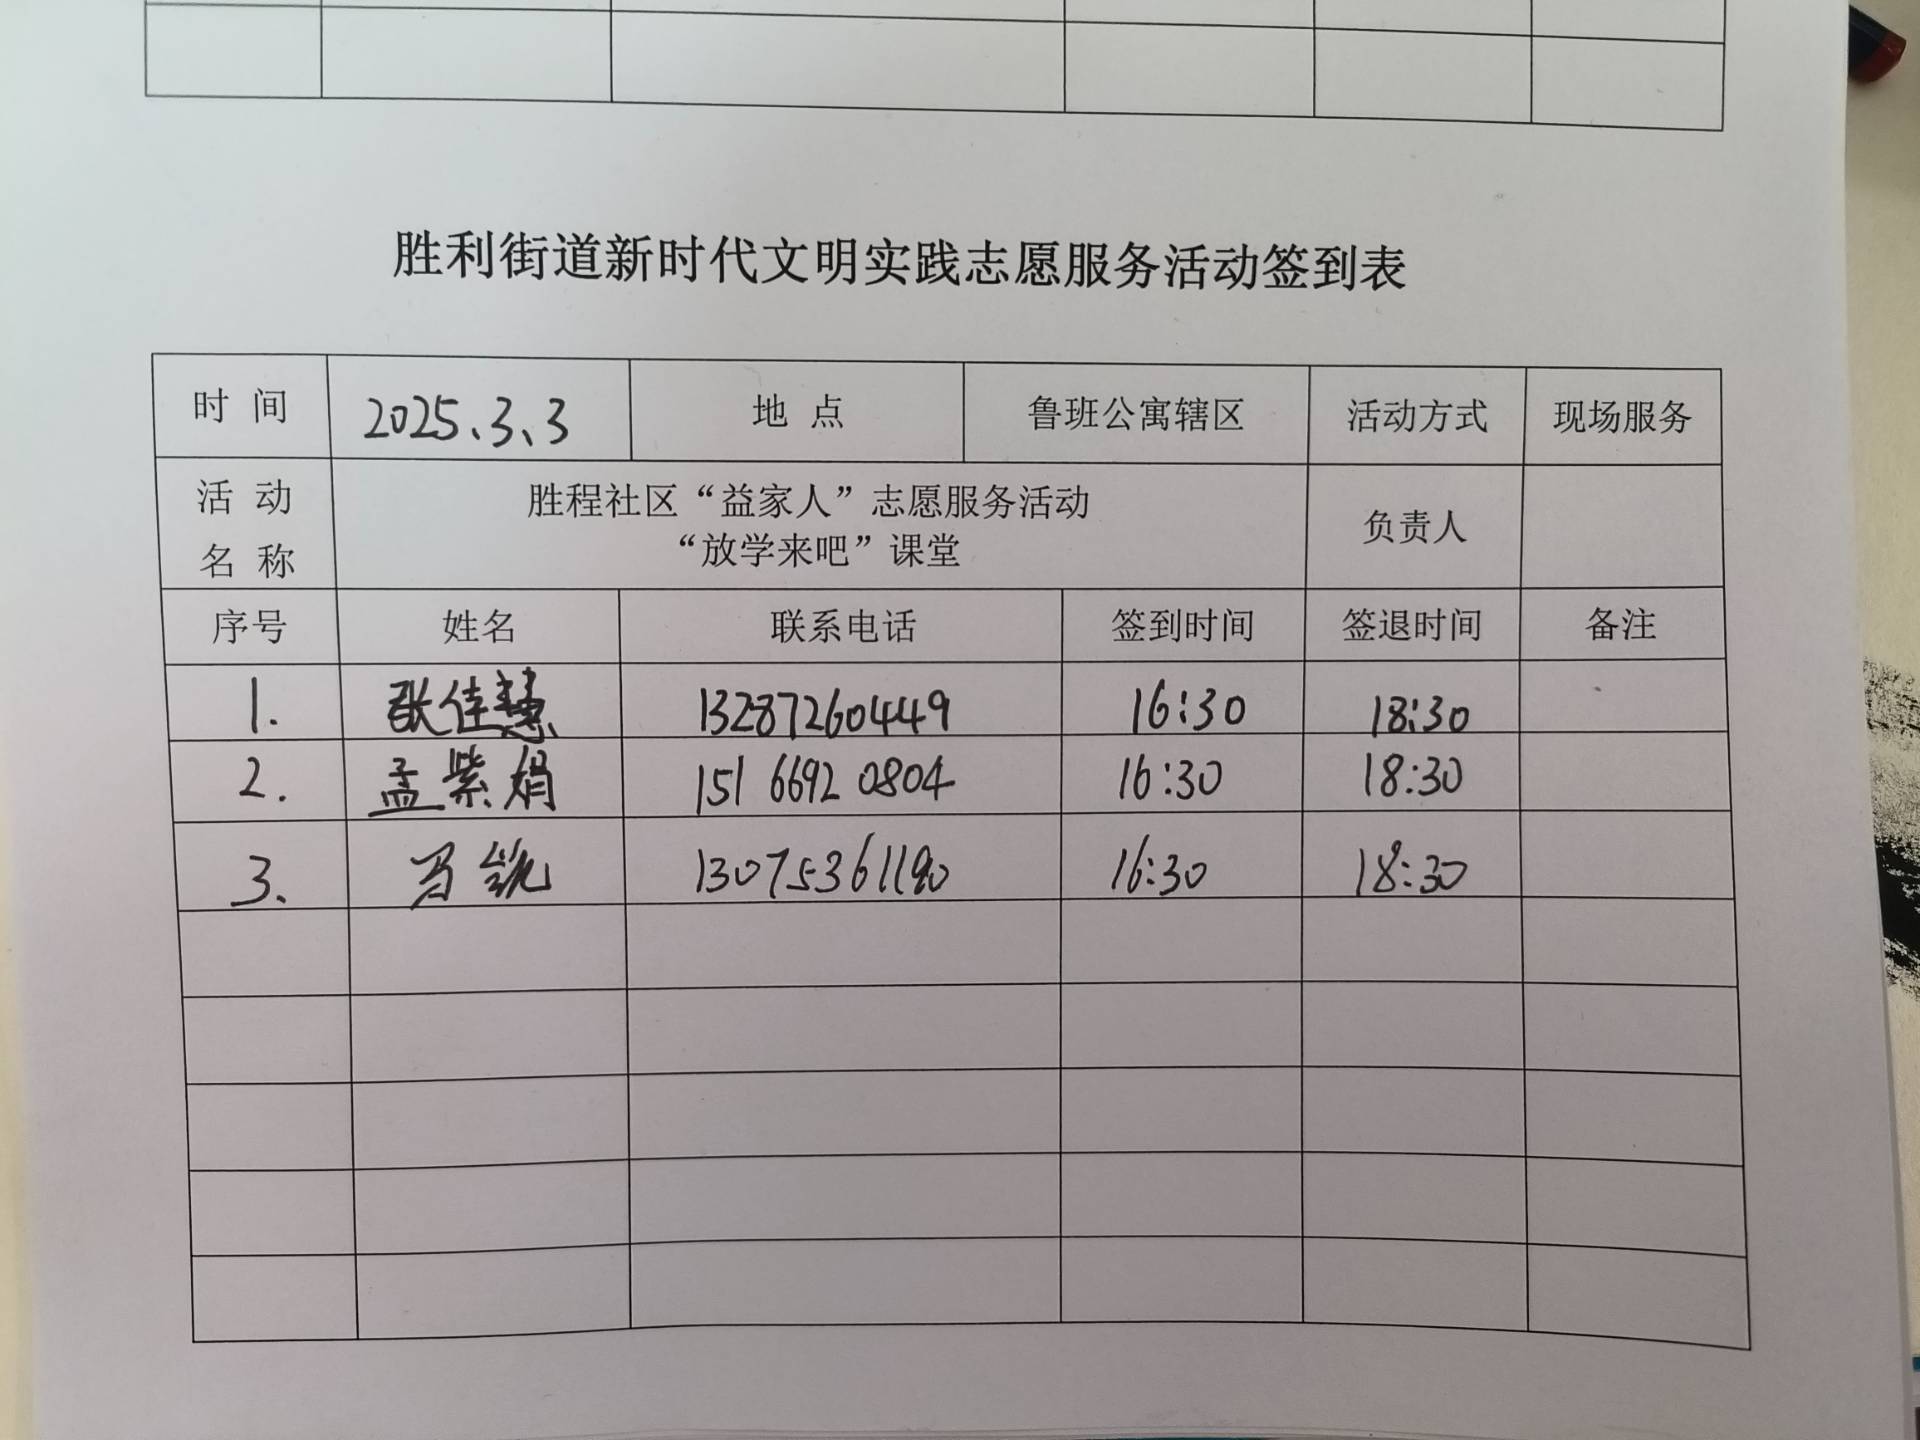 胜利街道新时代文明实践志愿服务活动签到表
时 间 2025、3、3 地 点 鲁班公寓辖区 活动方式 现场服务
活 动 名 称 胜程社区“益家人”志愿服务活动 负责人
“放学来吧”课堂
序号 姓名 联系电话 签到时间 签退时间 备注
1. 张佳慧 13287260449 16:30 18:30
2. 孟紫娟 151 6692 0804 16:30 18:30
3、 13075361190 16:30 18:30